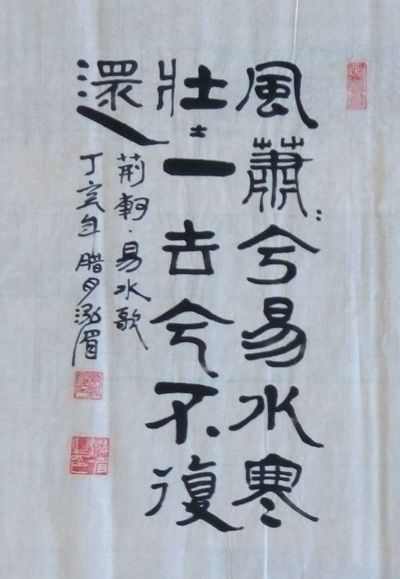 風蕭:兮易水寒
壯士一去兮不復
還
荊軻·易水歌
丁亥年腊月泓眉